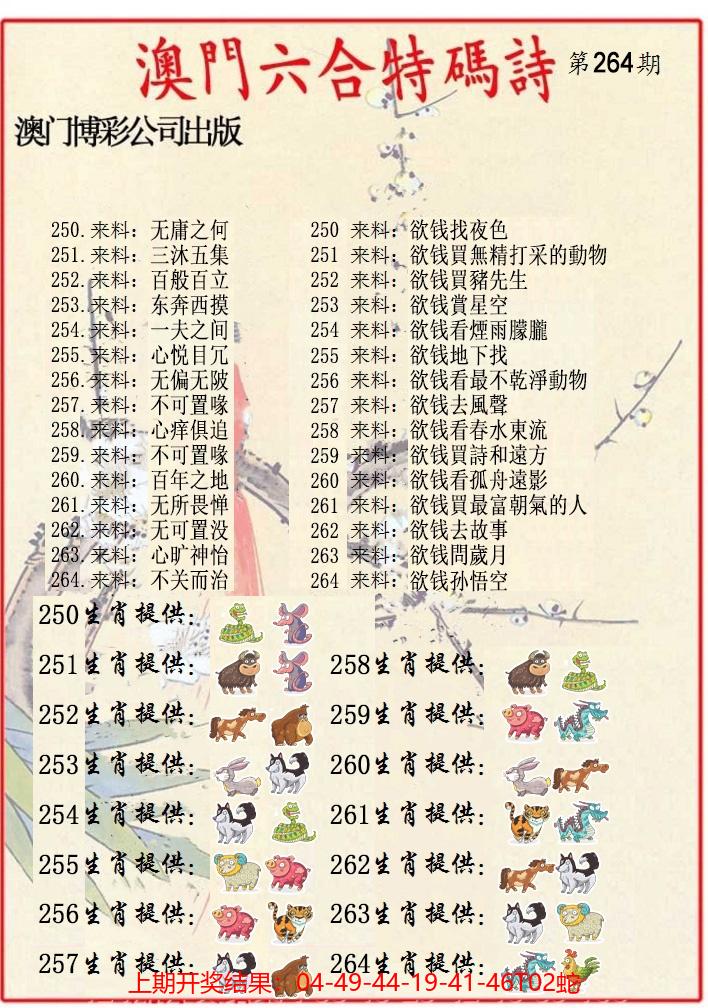 澳門六合特碼詩 第264期
澳门博彩公司出版
250.来料：无庸之何 250 来料：欲钱找夜色
251.来料：三沐五集 251 来料：欲钱買無精打采的動物
252.来料：百般百立 252 来料：欲钱買豬先生
253.来料：东奔西摸 253 来料：欲钱賞星空
254.来料：一夫之间 254 来料：欲钱看煙雨朦朧
255.来料：心悦目冗 255 来料：欲钱地下找
256.来料：无偏无陂 256 来料：欲钱看最不乾淨動物
257.来料：不可置喙 257 来料：欲钱去風聲
258.来料：心痒俱追 258 来料：欲钱看春水東流
259.来料：不可置喙 259 来料：欲钱買詩和遠方
260.来料：百年之地 260 来料：欲钱看孤舟遠影
261.来料：无所畏惮 261 来料：欲钱買最富朝氣的人
262.来料：无可置没 262 来料：欲钱去故事
263.来料：心旷神怡 263 来料：欲钱問歲月
264.来料：不关而治 264 来料：欲钱孙悟空
250生肖提供：
251生肖提供： 258生肖提供：
252生肖提供： 259生肖提供：
253生肖提供： 260生肖提供：
254生肖提供： 261生肖提供：
255生肖提供： 262生肖提供：
256生肖提供： 263生肖提供：
257生肖提供： 264生肖提供：
上期开奖结果：04-49-44-19-41-46T02蛇